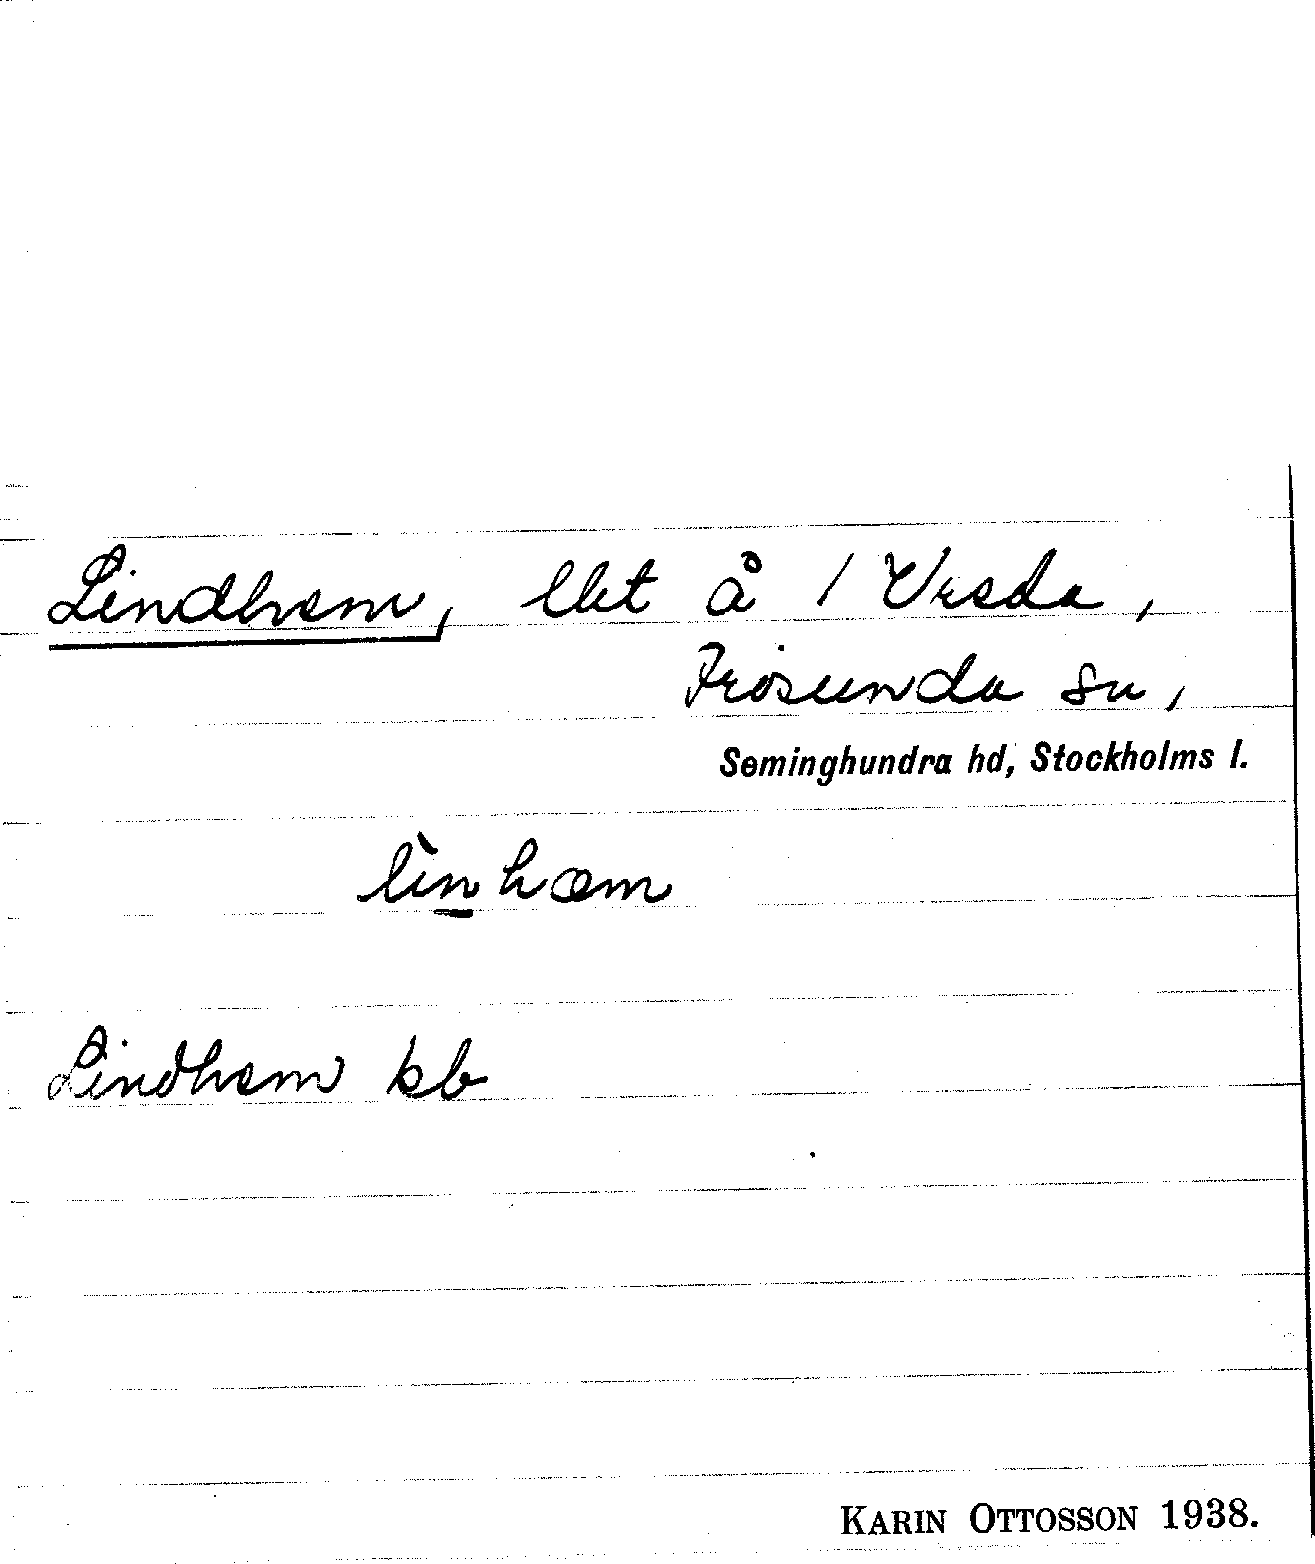 Lindhem, lht å 1 Vresta,
Frösunda sn,
Seminghundra hd, Stockholms l.
lìnhæm
Lindhem kb
KARIN OTTOSSON 1938.